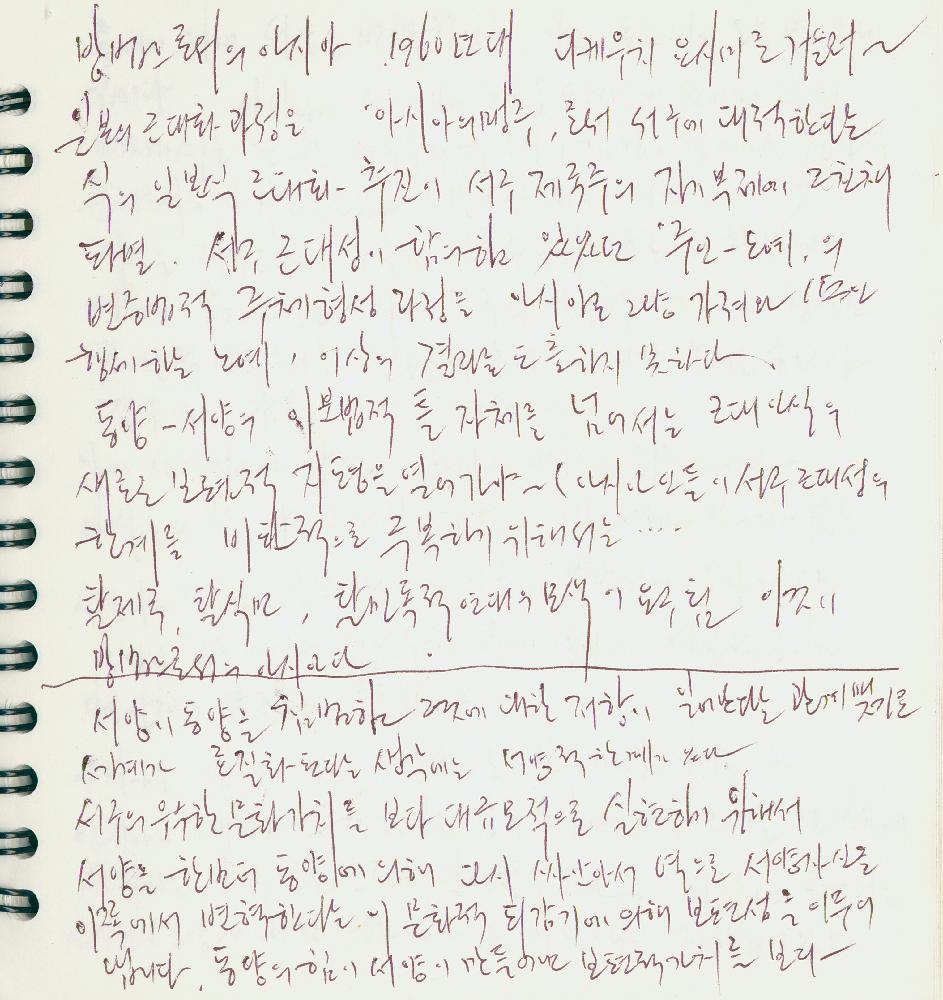 방법으로서의 아시아 1960년대 다케우치 요시미를 거슬러~
일본의 근대화 과정을 '아시아의 맹주'로서 서구에 대적한다는
식의 일본식 근대화 추진이 서구 제국주의 자기복제에 그친채
좌별. 서구 근대성이 함의하고 있었던 "주인-노예"의
변증법적 주체형성 과정을 아시아로 그냥 가져와 (주인
행세하는 노예) 이상의 결과를 도출하지 못하다.
동양-서양의 이분법적 틀 자체를 넘어서는 근대인식의
새로운 보편적 지평을 열어가야~ (아시아인들이 서구 근대성의
한계를 비판적으로 극복하기 위해서는 ....
탈제국, 탈식민, 탈민족적 연대의 모색이 요구됨 이것이
방법으로서의 아시아다
서양이 동양을 침범하고 그것에 대한 저항이 일어난다는 관계맺기로
세계가 균질화된다는 생각에는 치명적 한계가 있다
서구의 우수한 문화가치를 보다 대규모적으로 실현하기 위해서
서양을 한번더 동양에 의해 다시 싸안아서 역으로 서양자신을
이쪽에서 변혁한다는 이 문화적 되감기에 의해 보편성을 이루어
냅니다. 동양의 힘이 서양이 만들어낸 보편적가치를 보다~